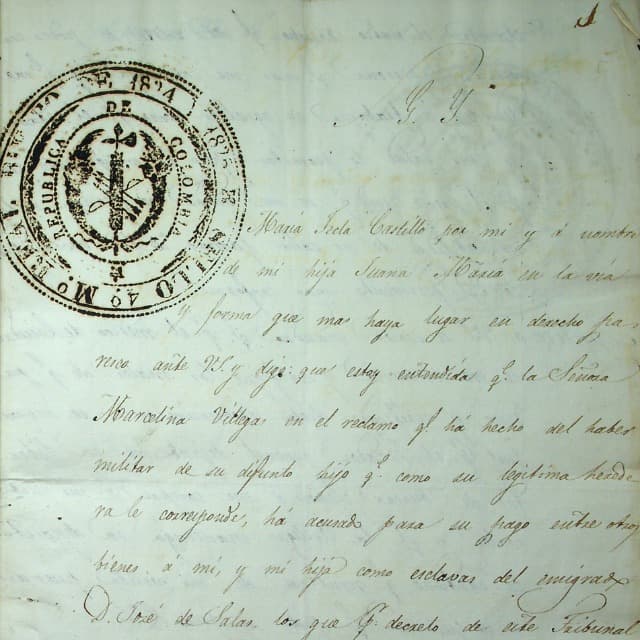 1
SELLO 4º Mº REAL BIENIO DE 1824 Y 1825
REPUBLICA DE COLOMBIA
María Castillo por mi y á nombre
de mi hija Juana María en la via
y forma que mas haya lugar en derecho pa
resco ante VS. y digo: que estoy entendida qᵉ la Señora
Marcelina Villegas en el reclamo qᵉ há hecho del haber
militar de su difunto hijo qᵉ como su legitima herede
ra le corresponde, há acusado para su pago entre otros
bienes á mí, y mi hija como esclavas del emigrado
D. José de Salas los que pʳ decreto de este Tribunal